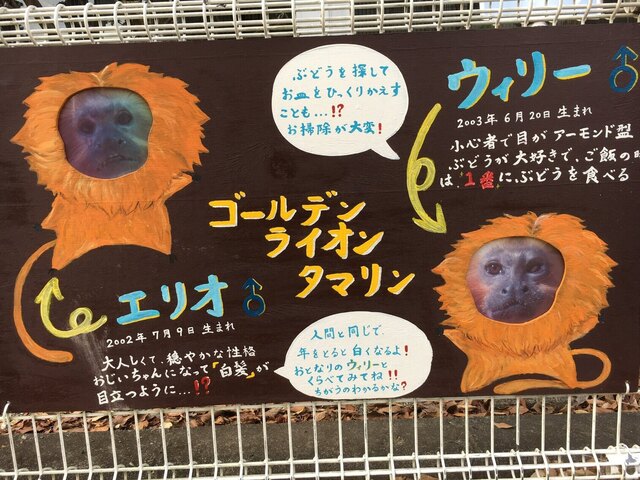 ぶどうを探して
お皿をひっくりかえす
ことも…!?
お掃除が大変!
ウィリー♂
2003年 6月 20日 生まれ
小心者で目が アーモンド型
ぶどうが大好きで、ご飯の時
は "1番" にぶどうを食べる
ゴールデン
ライオン
タマリン
エリオ♂
2002年 7月 9日 生まれ
大人しくて、穏やかな性格
おじいちゃんになって「白髪」が
目立つように…!?
人間と同じで、
年をとると白くなるよ!
おとなりのウィリーと
くらべてみてね!!
ちがうのわかるかな?